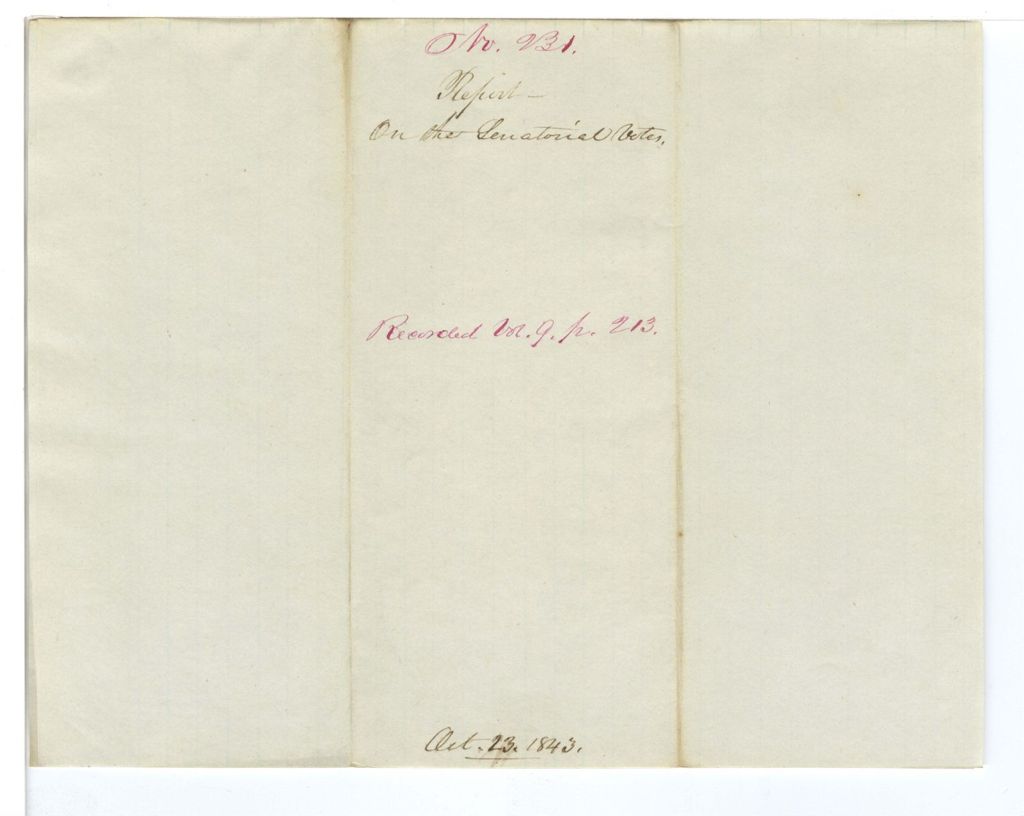 No. 231.
Report —
On the Senatorial Votes.
Recorded Vol. 9. p. 213.
Oct. 23. 1843.